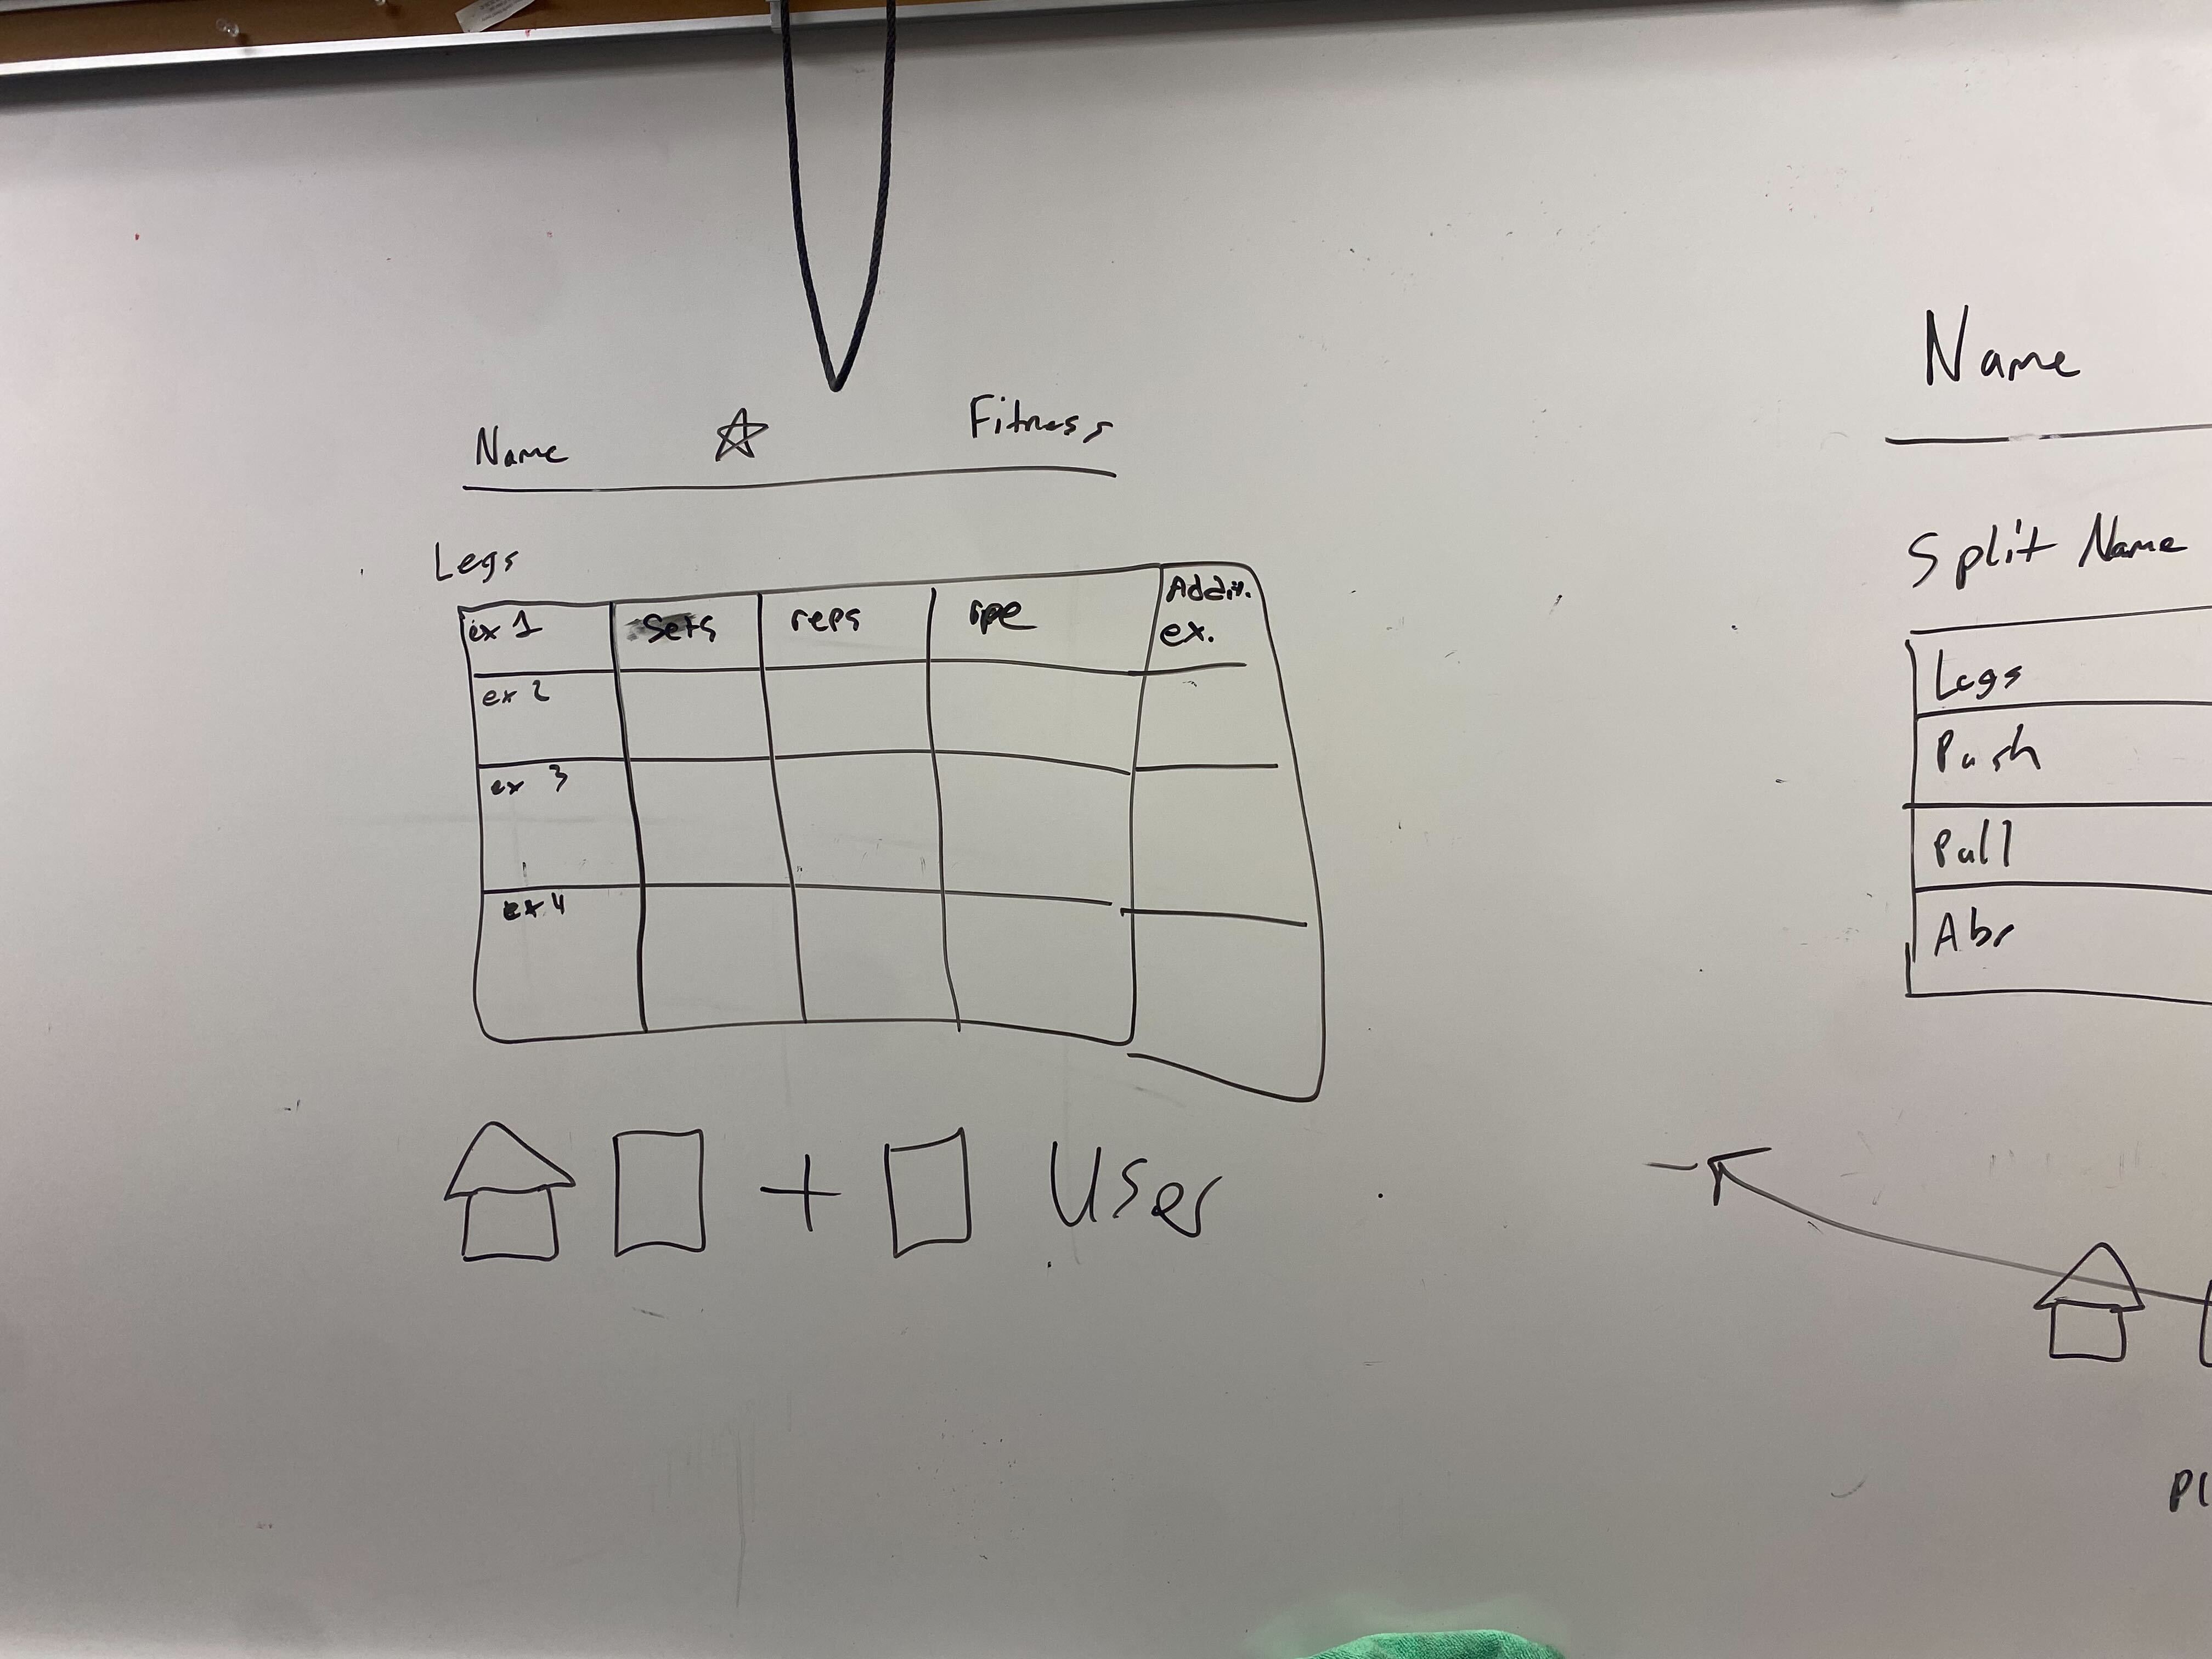 Name Fitness
Legs
ex 1 Sets reps rpe Addit. ex.
ex 2
ex 3
ex 4
+ User
Name
Split Name
Legs
Push
Pull
Abs
Pl